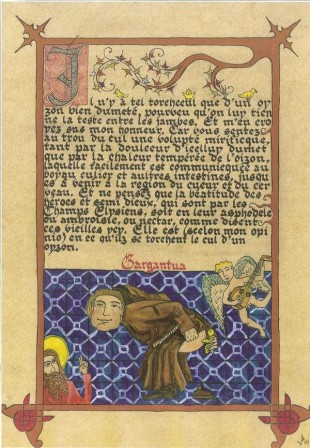 Il n'y à tel torchecul que d'un oy
zon bien dumeté, pourveu qu'on luy tien
ne la teste entre les jambes. Et m'en cro
yez sus mon honneur. Car vous sentez
au trou du cul une volupté mirificque,
tant par la doulceur d'icelluy dumet
que par la chaleur tempérée de l'oizon,
laquelle facilement est communicquée au
boyau culier et aultres intestines, jusqu
es à venir à la région du cueur et du cer
veau. Et ne pensez que la béatitude des
heroes et semi dieux, qui sont par les
Champs Elysiens, soit en leur asphodele
ou ambroisie, ou nectar, comme disent
ces vieilles ycy. Elle est (scelon mon opi
nio) en ce qu'ilz se torchent le cul d'un
oyzon.
Gargantua